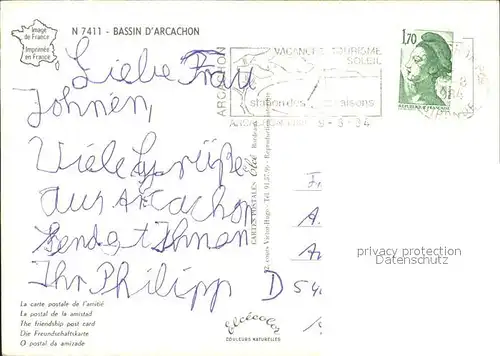 Image
de France
Imprimée
en France
N 7411 - BASSIN D'ARCACHON
Liebe Frau
Johnen,
Viele Grüße
aus Arcachon
sendet Ihnen
Ihr Philipp
ARCACHON
VACANCES TOURISME
SOLEIL
station des saisons
9-8-84
1,70
REPUBLIQUE FRANÇAISE
CARTES POSTALES Elcé Bordeaux
cours Victor-Hugo - Tel. 91.57.95 - Reproduction
F
A
A
D 54
privacy protection
Datenschutz
La carte postale de l'amitié
La postal de la amistad
The friendship post card
Die Freundschaftskarte
O postal da amizade
Elcécolor
COULEURS NATURELLES